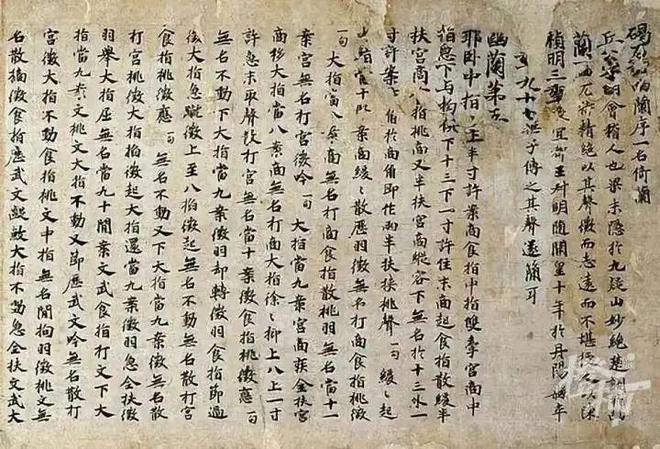 碣石調幽蘭序一名倚蘭
丘公字明會稽人也梁末隱於九疑山妙絕楚調
蘭一曲尤特精絕以其聲微而志遠而不堪授人以陳
禎明三年授宜都王叔明隨開皇十年於丹陽縣卒
年九十七無子傳之其聲遂簡耳
幽蘭第五
耶臥中指十上半寸許案商食指中指雙牽宮商中
指急下與拘俱下十三下一寸許住末商起食指散緩半
扶宮商食指挑商又半扶宮商縱容下無名於十三外一
寸許案商角於商角即作兩半扶挾挑聲一句緩緩起
當十臥案商緩緩散歷羽徵無名打商食指挑徵
一句 大指當八案商無名打商食指散挑羽無名當十一
案宮無名打宮徵吟一句 大指當九案宮商疾全扶宮
商移大指當八案商無名打商大指徐徐抑上八上一寸
許急末取聲散打宮無名當十案徵食指挑徵應一句
無名不動下大指當九案徵羽却轉徵羽食指節過
徵大指急蹴徵上至八指徵起無名不動無名散打宮
食指挑徵應一句 無名不動又下大指當九案徵羽無名散
打宮挑徵大指掐徵起大指還當九案徵羽急全扶徵
羽舉大指屈無名當九十間案文武食指打文下大
指當九案文挑文大指不動又節歷武文吟無名散打
宮徵大指不動食指挑文中指無名間拘羽徵挑文無
名散摘徵食指歷武文蹴蹴大指不動急全扶文武大